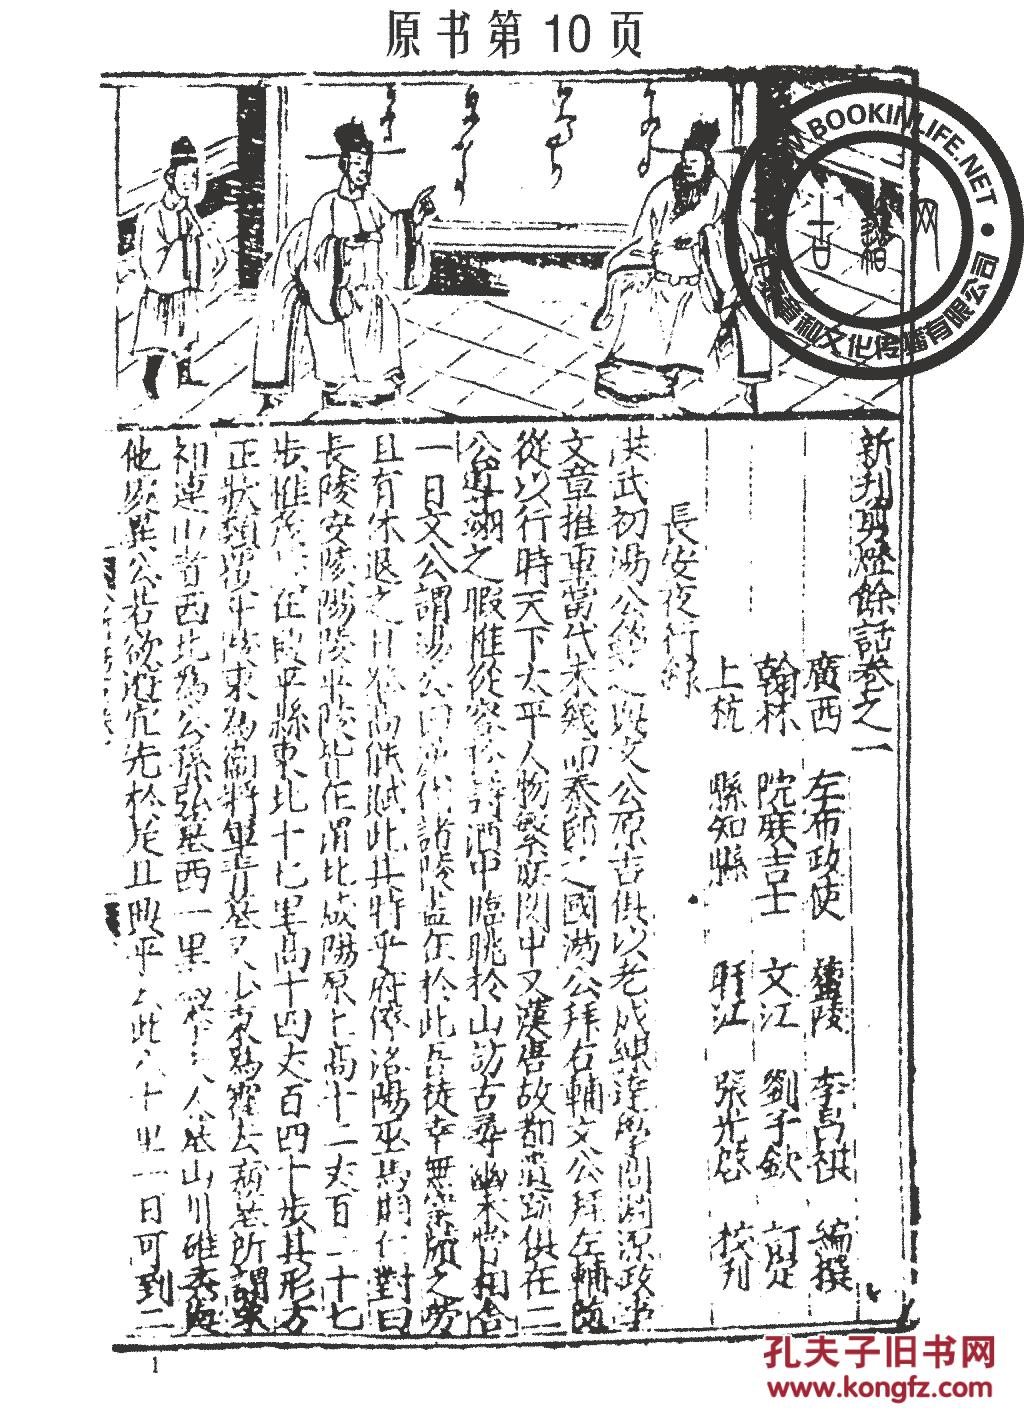 原书第10页
WWW.BOOKINLIFE.NET
文化传播有限公司
新刋剪燈餘話卷之一
廣西 左布政使 廬陵 李昌祺 編撰
翰林 院庶吉士 文江 劉子欽 訂定
上杭 縣知縣 旴江 張光啓 校刊
長安夜行錄
洪武初湯公 之與文公原吉俱以老成練達學問淵源政事
文章推重當代未幾而秦邸之國湯公拜右輔文公拜左輔隨
從以行時天下太平人物繁庶關中又漢唐故都遺跡俱在二
公導翊之暇惟從容於詩酒中臨眺於山訪古尋幽未嘗相舍
一日文公謂湯公曰漢代諸陵盡在於此吾徒幸無案牘之勞
且有休退之 高能賦此其時乎府僚洛陽巫馬期仁對曰
長陵安陵陽陵平陵皆在渭北咸陽原上高十二丈百二十七
步惟茂陵在興平縣東北十七里高十四丈百四十步其形方
正狀類覆斗陵東為衛將軍青墓又少東為霍去病墓所謂
初連山者西北為公孫弘墓西一里 李夫人墓山川雄秀
他處異公若欲遊宂先於此且興平去此六十里一日可到二
1
孔夫子旧书网
www.kongfz.com